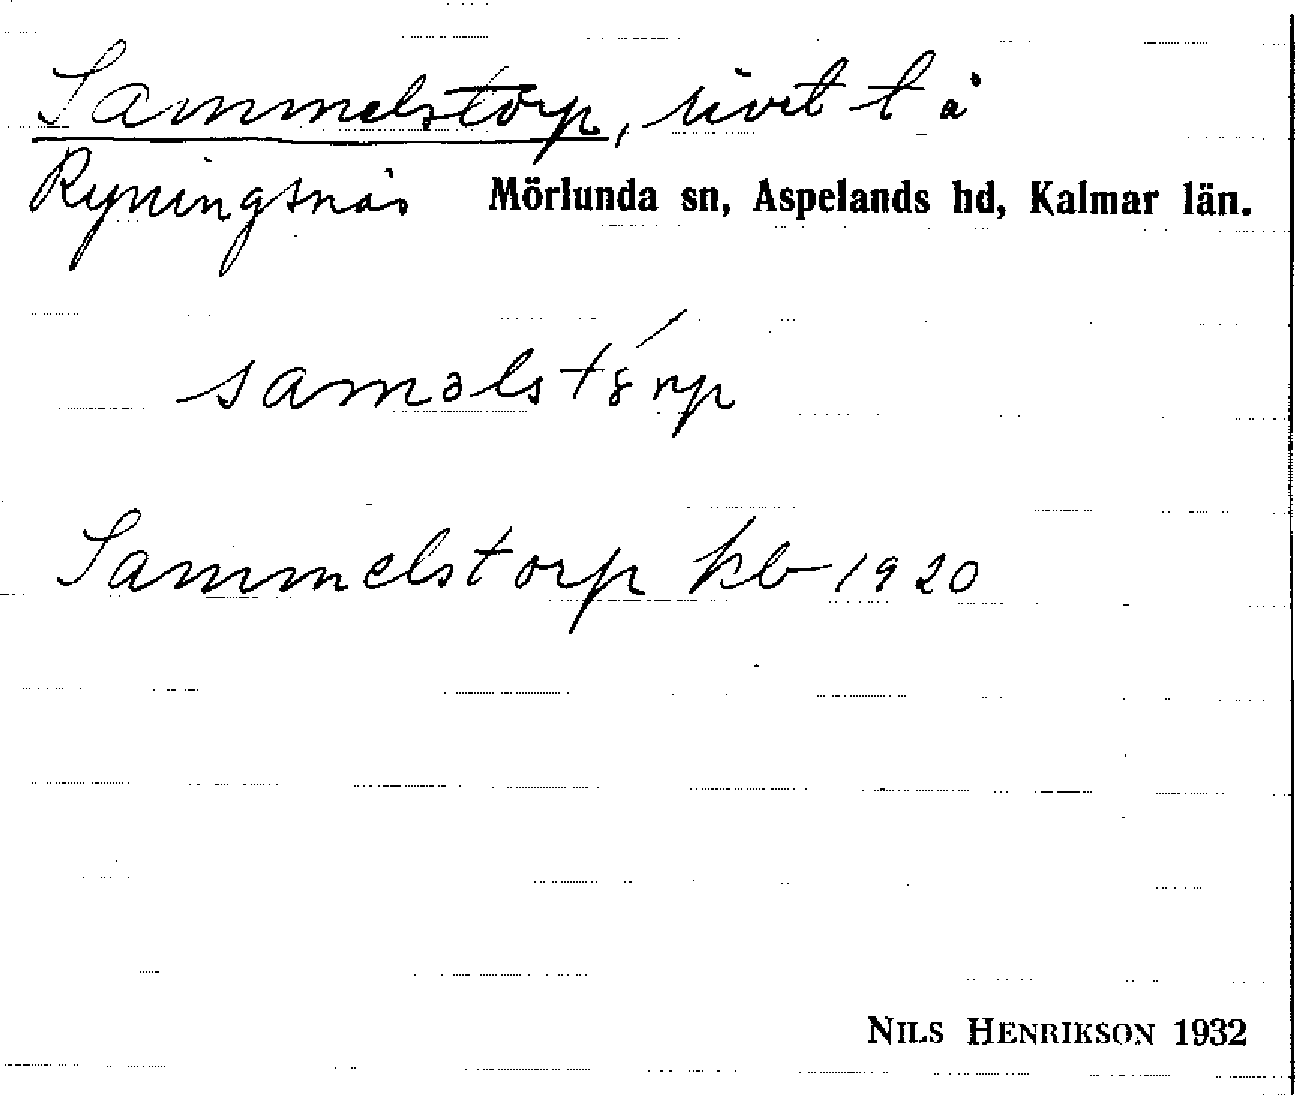 Sammelstorp, rivet t å
Ryningsnäs Mörlunda sn, Aspelands hd, Kalmar län.
saməlst8́rp
Sammelstorp kb 1920
NILS HENRIKSON 1932